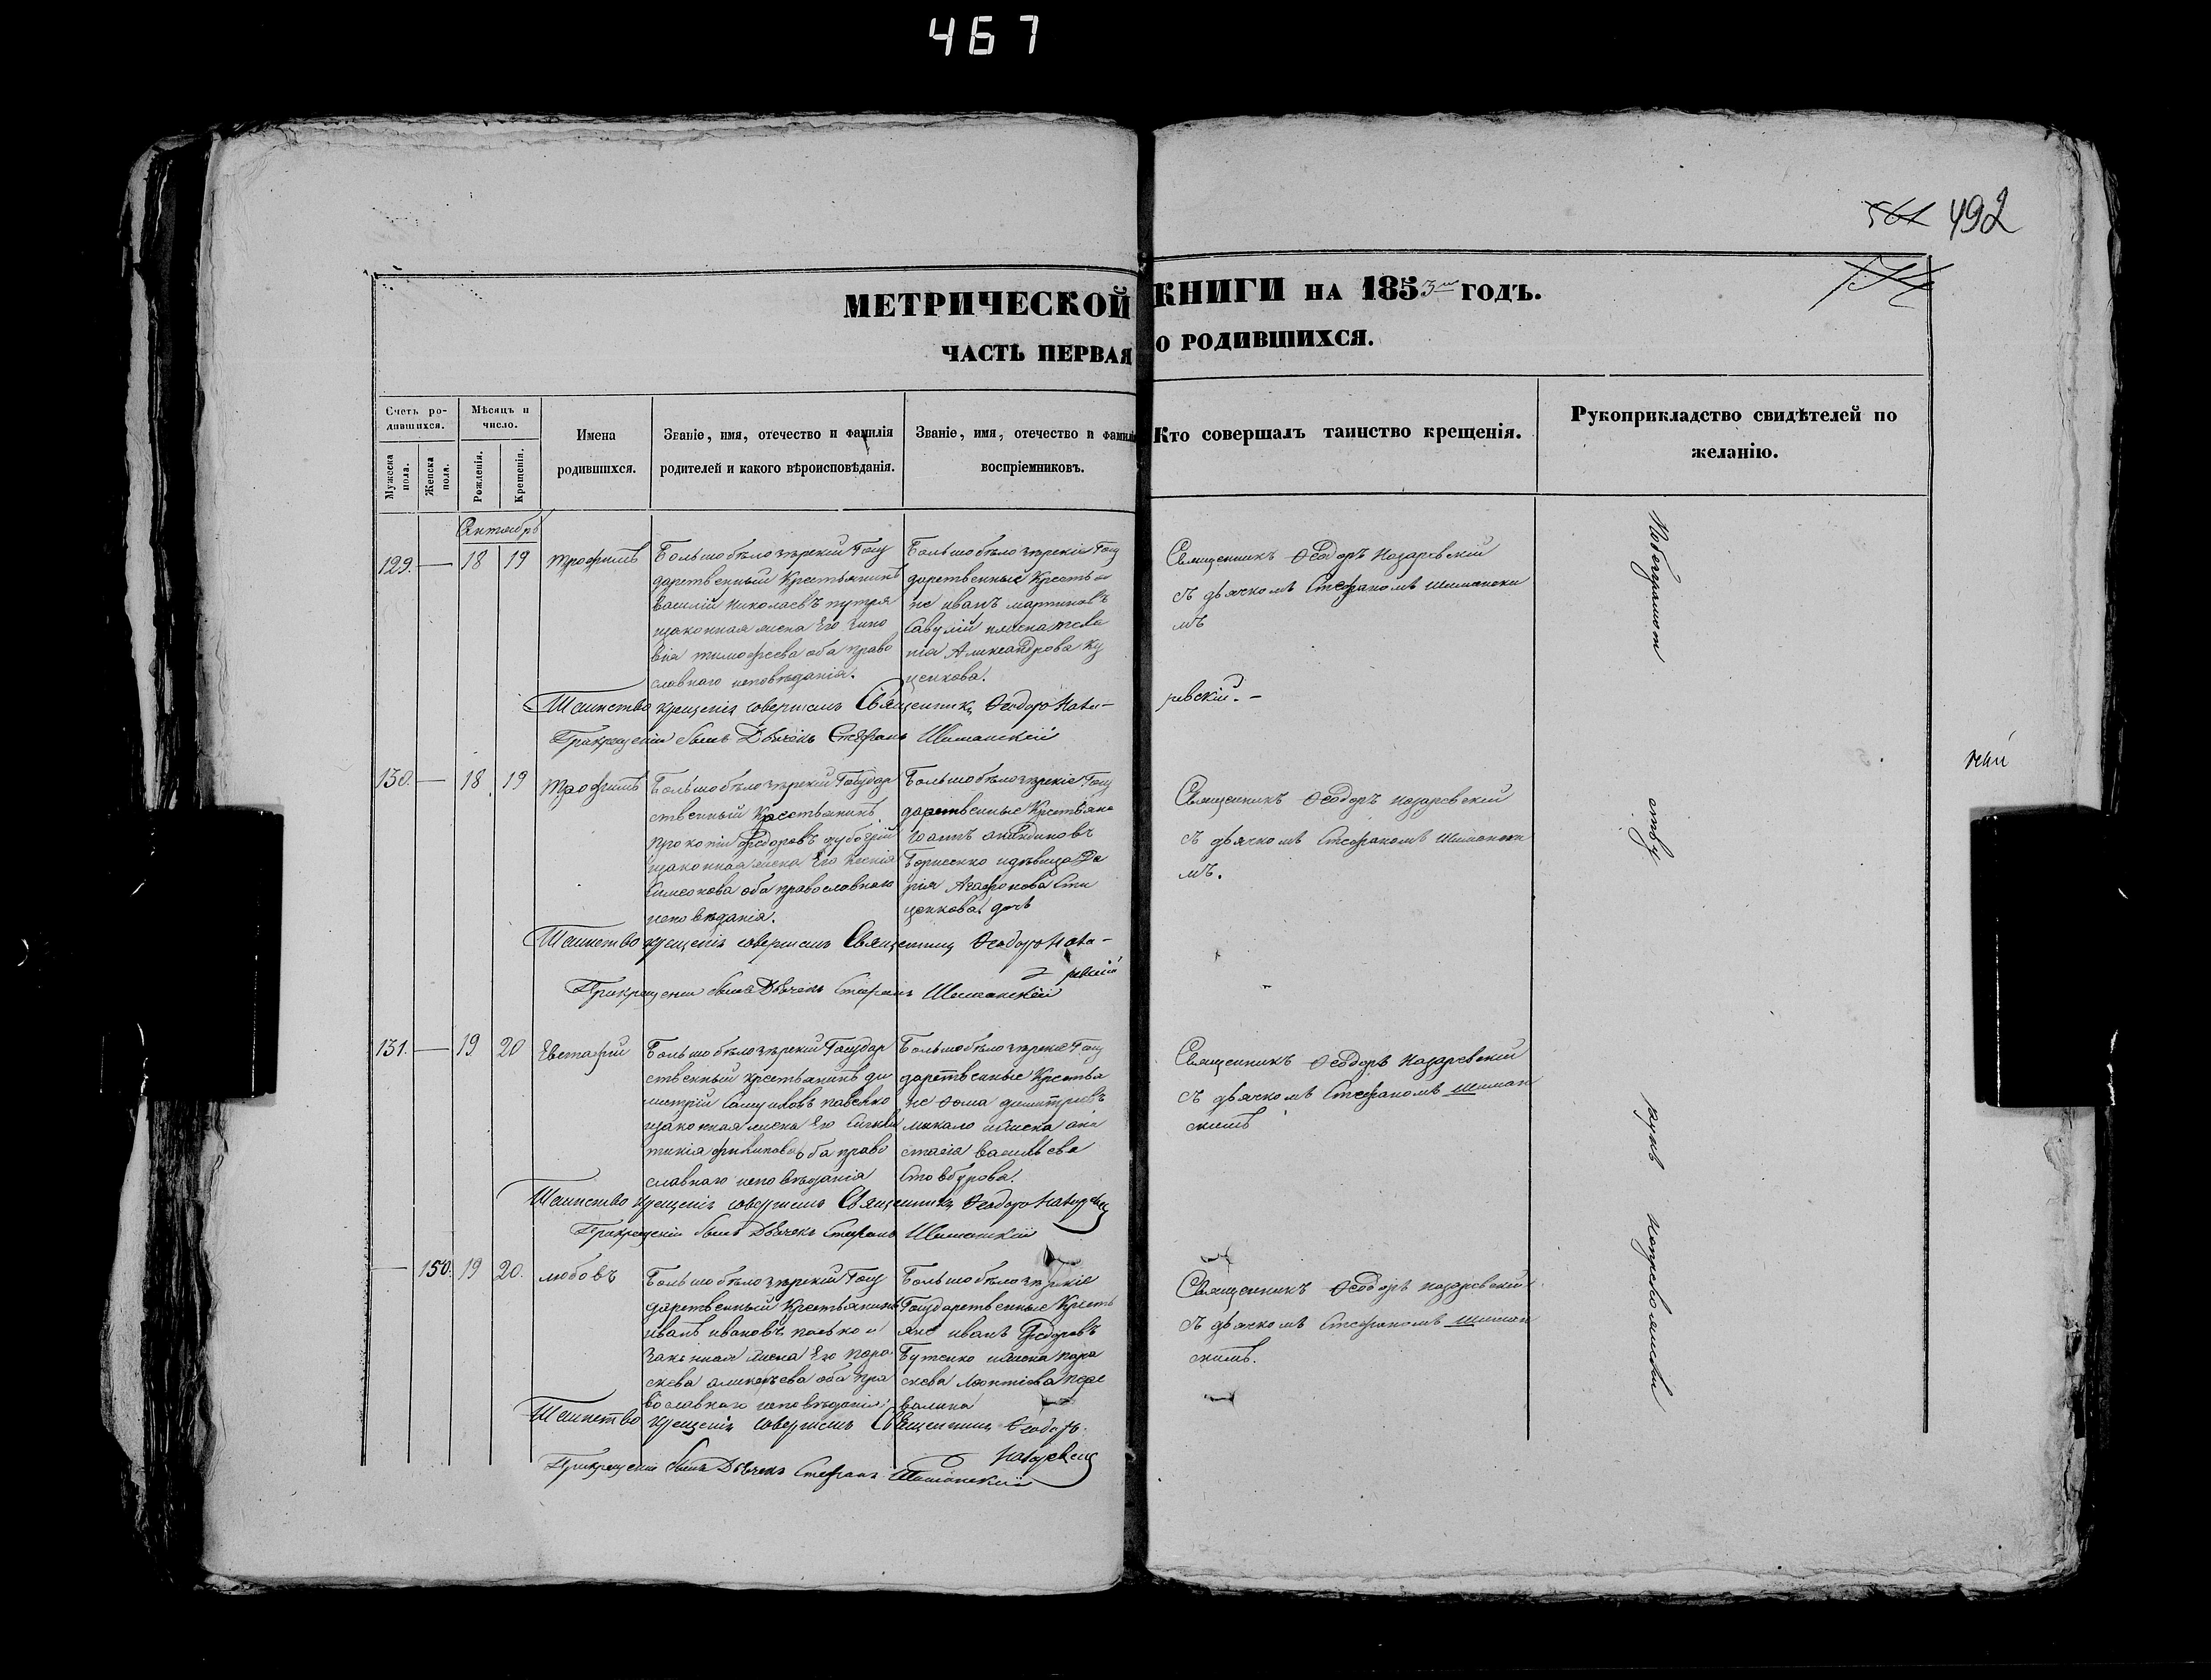 467
492
МЕТРИЧЕСКОЙ КНИГИ НА 1853 ГОДЪ.
ЧАСТЬ ПЕРВАЯ О РОДИВШИХСЯ.
Счетъ ро-
дившихся.
Мужеска пола.
Женска пола.
Мѣсяцъ и
число.
Рожденія.
Крещенія.
Имена
родившихся.
Званіе, имя, отечество и фамилія
родителей и какого вѣроисповѣданія.
Званіе, имя, отечество и фамилія
воспріемниковъ.
Кто совершалъ таинство крещенія.
Рукоприкладство свидѣтелей по
желанію.
Октябрь
129. — 18 19 Трофимъ
Большобѣлозѣрскій Госу
дарственный Крестьянинъ
Василій Николаевъ
законная жена Его Зино
вія Тимофеева оба право
славнаго исповѣданія.
Большобѣлозѣрскіе Госу
дарственные Крестья
не Иванъ Мартиновъ
Савулій
нія Александрова Ку
ценкова.
Священникъ Ѳеодоръ Назаревскій
съ дьячкомъ Стефаномъ Шимански
мъ
Таинство крещенія совершалъ Священникъ Ѳеодоръ Наза-
ревскій. -
При крещеніи былъ Дьячекъ Стефанъ Шиманскій
130. — 18 19 Трофимъ
Большобѣлозѣрскій Государ
ственный Крестьянинъ
Прокопій Федоровъ
законная жена Его Ксенія
Симеонова оба православнаго
исповѣданія.
Большобѣлозѣрскіе Госу
дарственные Крестьяне
Борисенко и дѣвица Да
рія Агафонова Сти
ценкова дочь
Священникъ Ѳеодоръ Назаревскій
съ дьячкомъ Стефаномъ Шимански
мъ.
Таинство крещенія совершалъ Священникъ Ѳеодоръ Наза-
ревскій
При крещеніи былъ Дьячекъ Стефанъ Шиманскій
131. — 19 20 Евстафій
Большобѣлозѣрскій Государ
ственный крестьянинъ Ди
митрій Самуиловъ Павленко
законная жена Его Синкли
тикія Филипова оба право
славнаго исповѣданія
Большобѣлозѣрскіе Госу
дарственные Крестья
не Ѳома Димитріевъ
Микало и жена Ана
стасія Васильева
Стовбурова.
Священникъ Ѳеодоръ Назаревскій
съ дьячкомъ Стефаномъ Шиман
скимъ
Таинство крещенія совершалъ Священникъ Ѳеодоръ Назаревскій
При крещеніи былъ Дьячекъ Стефанъ Шиманскій
— 150. 19 20. Любовь
Большобѣлозѣрскій Госу
дарственный Крестьянинъ
Иванъ Ивановъ Палько и
законная жена Его Пара
скева Алексѣева оба пра
вославнаго исповѣданія
Большобѣлозѣрскіе
Государственные Кресть
яне Иванъ Федоровъ
Бутенко и жена Пара
скева Леонтіева Пере
валина
Священникъ Ѳеодоръ Назаревскій
съ дьячкомъ Стефаномъ Шиман
скимъ.
Таинство крещенія совершалъ Священникъ Ѳеодоръ
Назаревскій
При крещеніи былъ Дьячекъ Стефанъ Шиманскій